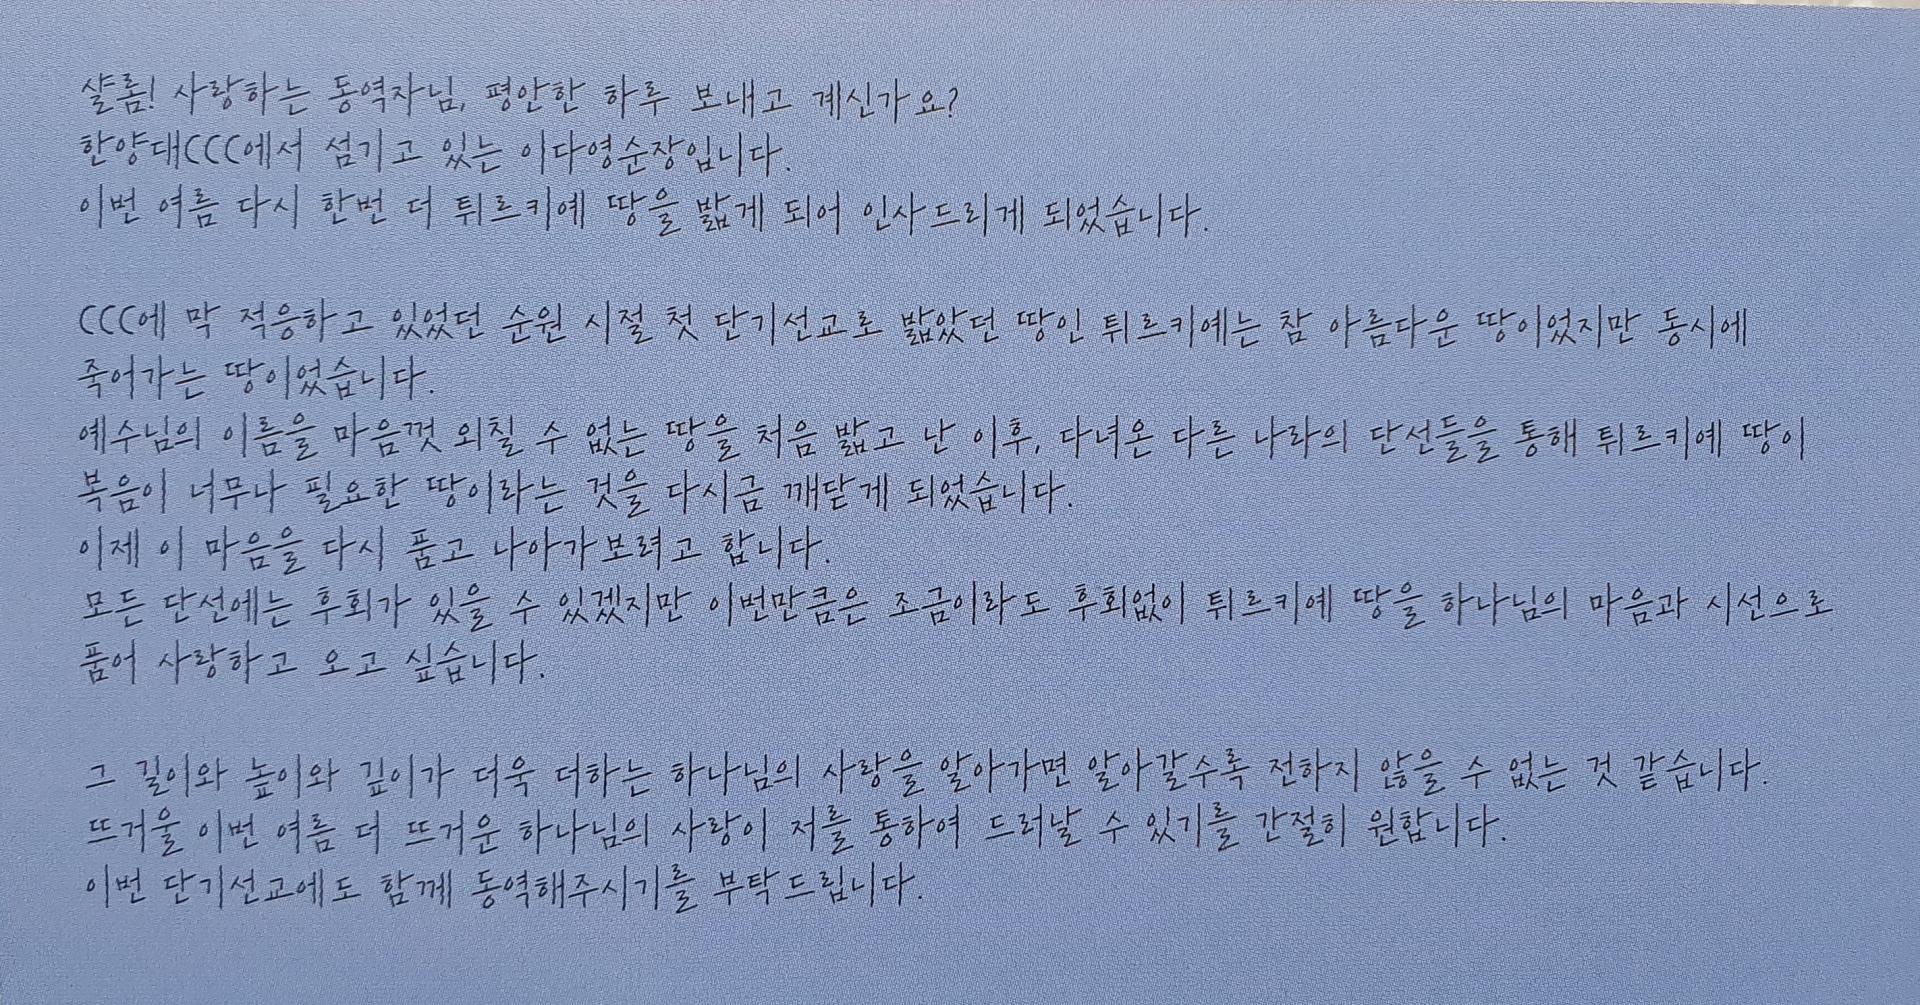 샬롬! 사랑하는 동역자님, 평안한 하루 보내고 계신가요?
한양대CCC에서 섬기고 있는 이다영순장입니다.
이번 여름 다시 한번 더 튀르키예 땅을 밟게 되어 인사드리게 되었습니다.
CCC에 막 적응하고 있었던 순원 시절 첫 단기선교로 밟았던 땅인 튀르키예는 참 아름다운 땅이었지만 동시에
죽어가는 땅이었습니다.
예수님의 이름을 마음껏 외칠 수 없는 땅을 처음 밟고 난 이후, 다녀온 다른 나라의 단선들을 통해 튀르키예 땅이
복음이 너무나 필요한 땅이라는 것을 다시금 깨닫게 되었습니다.
이제 이 마음을 다시 품고 나아가보려고 합니다.
모든 단선에는 후회가 있을 수 있겠지만 이번만큼은 조금이라도 후회없이 튀르키예 땅을 하나님의 마음과 시선으로
품어 사랑하고 오고 싶습니다.
그 길이와 높이와 깊이가 더욱 더하는 하나님의 사랑을 알아가면 알아갈수록 전하지 않을 수 없는 것 같습니다.
뜨거울 이번 여름 더 뜨거운 하나님의 사랑이 저를 통하여 드러날 수 있기를 간절히 원합니다.
이번 단기선교에도 함께 동역해주시기를 부탁드립니다.